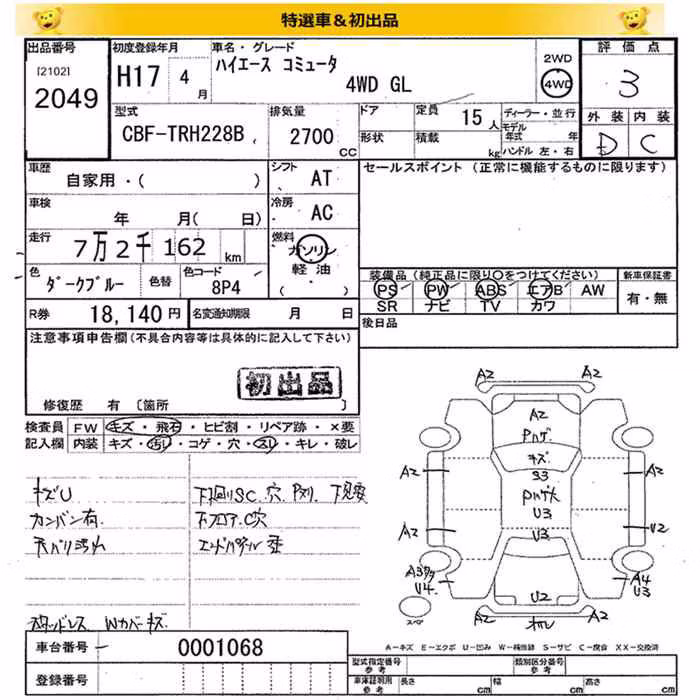 特選車&初出品
出品番号
[2102]
2049
初度登録年月
H17 4月
車名・グレード
ハイエース コミュータ
4WD GL
2WD
4WD
評価点
3
外装 内装
D C
型式
CBF-TRH228B
排気量
2700
CC
ドア
形状
定員 15人
積載 kg
ディーラー・並行
モデル年式 年
ハンドル 左・右
車歴
自家用・( )
シフト
AT
車検
年 月( 日)
冷房
AC
走行
7万2千162 km
燃料
ガソリン
軽油
( )
色
ダークブルー
色替
色コード
8P4
R券 18,140円
名変通知期限 月 日
セールスポイント (正常に機能するものに限ります)
装備品 (純正品に限り○をつけてください)
新車保証書
PS PW ABS エアB AW
SR ナビ TV カワ
有・無
後日品
注意事項申告欄(不具合内容等は具体的に記入して下さい)
初出品
修復歴 有 〔箇所 〕
検査員 FW キズ・飛石・ヒビ割・リペア跡・×要
記入欄 内装 キズ・汚れ・コゲ・穴・スレ・キレ・破レ
キズU
カンバン有
下廻りSC.穴
下フロアC穴
スタッドレス Wカバーキズ
A2
A2
A2
Pハゲ
キズ
S3
A2
A2
Pハゲ大
U3
A2
U2
U3
A3
U4
A4
U3
U2
スペア
A-キズ E-エクボ U-凹み W-補修跡 S-サビ C-腐食 XX-交換済
車台番号 0001068
登録番号
型式指定番号
参考
類別区分番号
参考
車庫証明用
参考
長さ cm
幅 cm
高さ cm